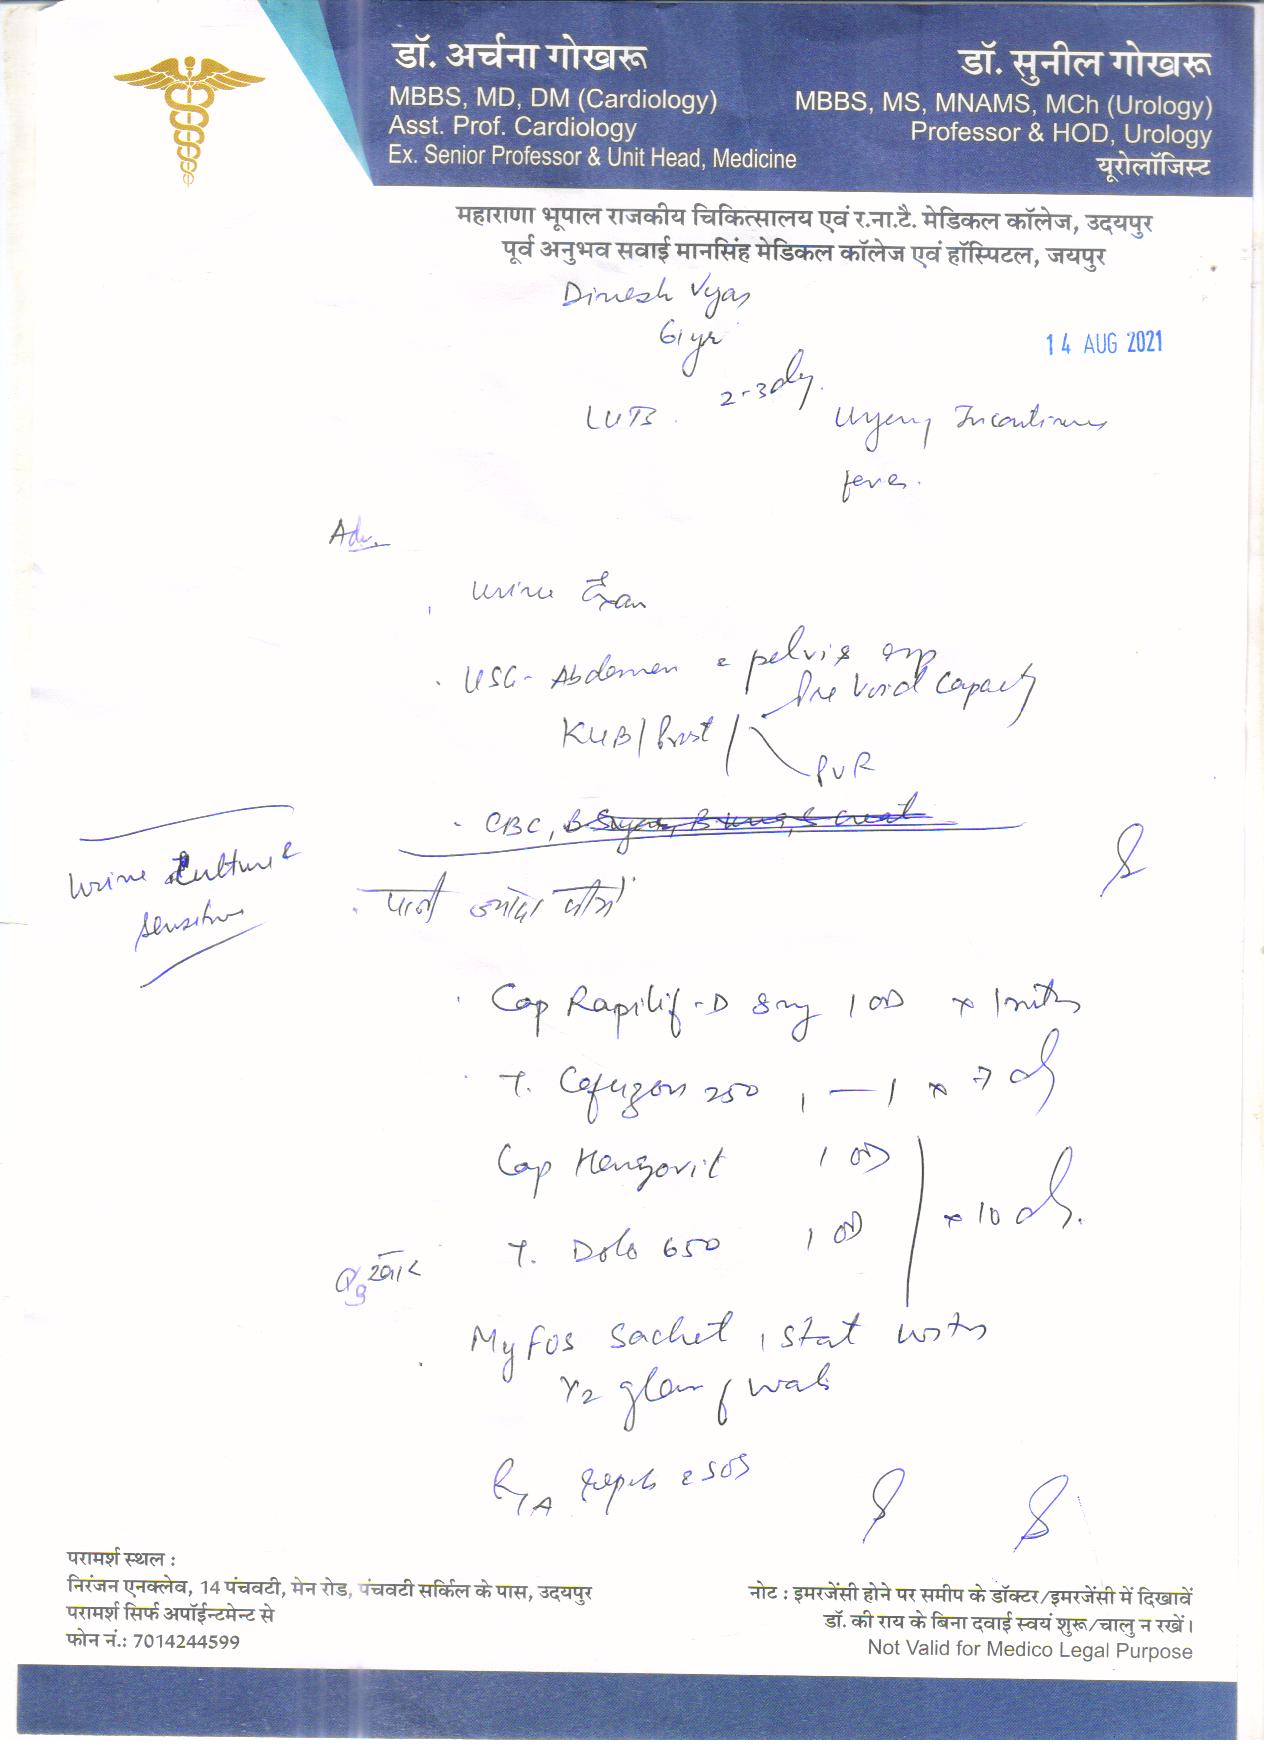 डॉ. अर्चना गोखरू
MBBS, MD, DM (Cardiology)
Asst. Prof. Cardiology
Ex. Senior Professor & Unit Head, Medicine
डॉ. सुनील गोखरू
MBBS, MS, MNAMS, MCh (Urology)
Professor & HOD, Urology
यूरोलॉजिस्ट
महाराणा भूपाल राजकीय चिकित्सालय एवं र.ना.टै. मेडिकल कॉलेज, उदयपुर
पूर्व अनुभव सवाई मानसिंह मेडिकल कॉलेज एवं हॉस्पिटल, जयपुर
Dinesh Vyas
61 yr
14 AUG 2021
2-3 day.
LUTS.
Urgency Incontinence
fever.
Adv.
Urine Exam
USG- Abdomen & pelvis
Pre Void Capacity
KUB/Prost/
PVR
CBC, B Sugar, B urea, S creat
Urine Culture &
Sensitivity
पानी ज्यादा पीओ
Cap Rapilif-D 8mg 1 OD x 1 mth
T. Cefuzon 250 1 — 1 x 7 d
Cap 1 OD
x 10 d.
T. Dolo 650 1 OD
Myfos Sachet 1 stat
1/2 glass of water
R/A reports SOS
परामर्श स्थल :
निरंजन एनक्लेव, 14 पंचवटी, मेन रोड, पंचवटी सर्किल के पास, उदयपुर
परामर्श सिर्फ अपॉईन्टमेन्ट से
फोन नं.: 7014244599
नोट : इमरजेंसी होने पर समीप के डॉक्टर/इमरजेंसी में दिखावें
डॉ. की राय के बिना दवाई स्वयं शुरू/चालु न रखें।
Not Valid for Medico Legal Purpose